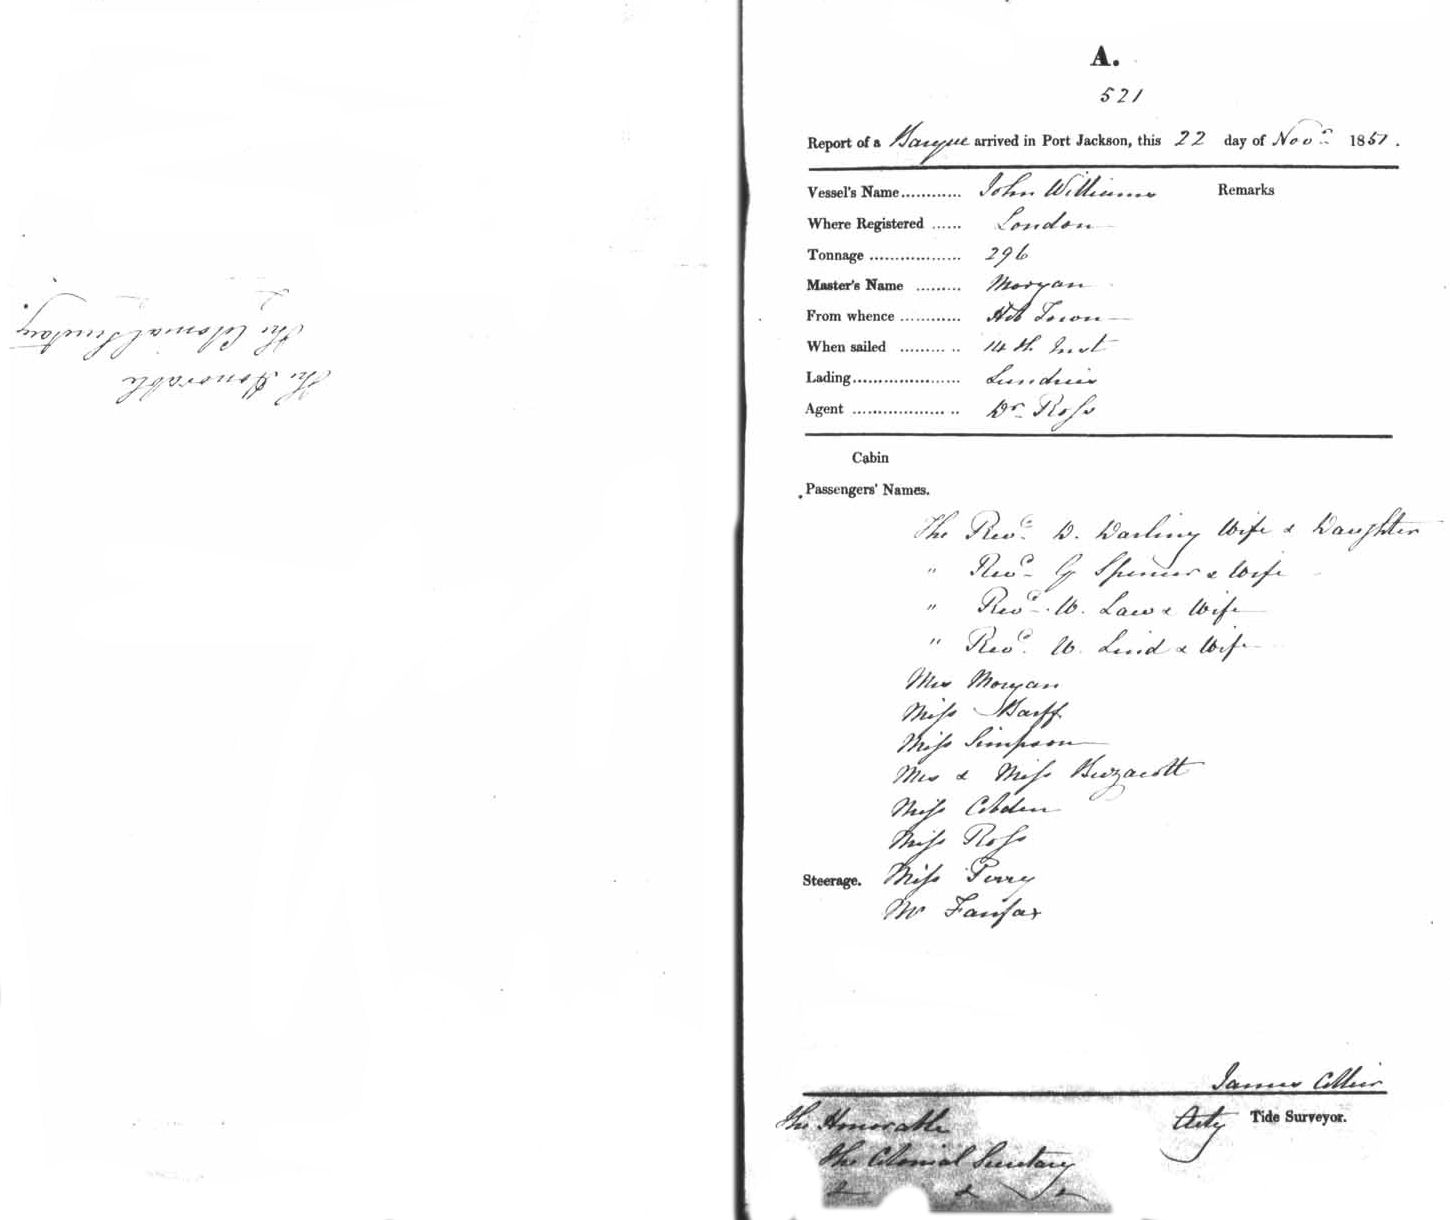 The Honorable
The Colonial Secretary
A.
521
Report of a Barque arrived in Port Jackson, this 22 day of Novr 1851.
Vessel's Name............ John Williams Remarks
Where Registered ...... London
Tonnage .................. 296
Master's Name ......... Morgan
From whence ............ Hob Town
When sailed ......... .. 14th Inst
Lading..................... Sundries
Agent .................. .. Dr Ross
Cabin
Passengers' Names.
The Revd. D. Darling Wife & Daughter
" Revd G Spencer & Wife
" Revd. W. Law & Wife
" Revd. W. Lind & Wife
Mrs Morgan
Miss Barff
Miss Simpson
Mrs & Miss Buzacott
Miss Cobden
Miss Ross
Steerage. Miss Perry
Mr Fairfax
James Collier
Actg Tide Surveyor.
The Honorable
The Colonial Secretary
& & &